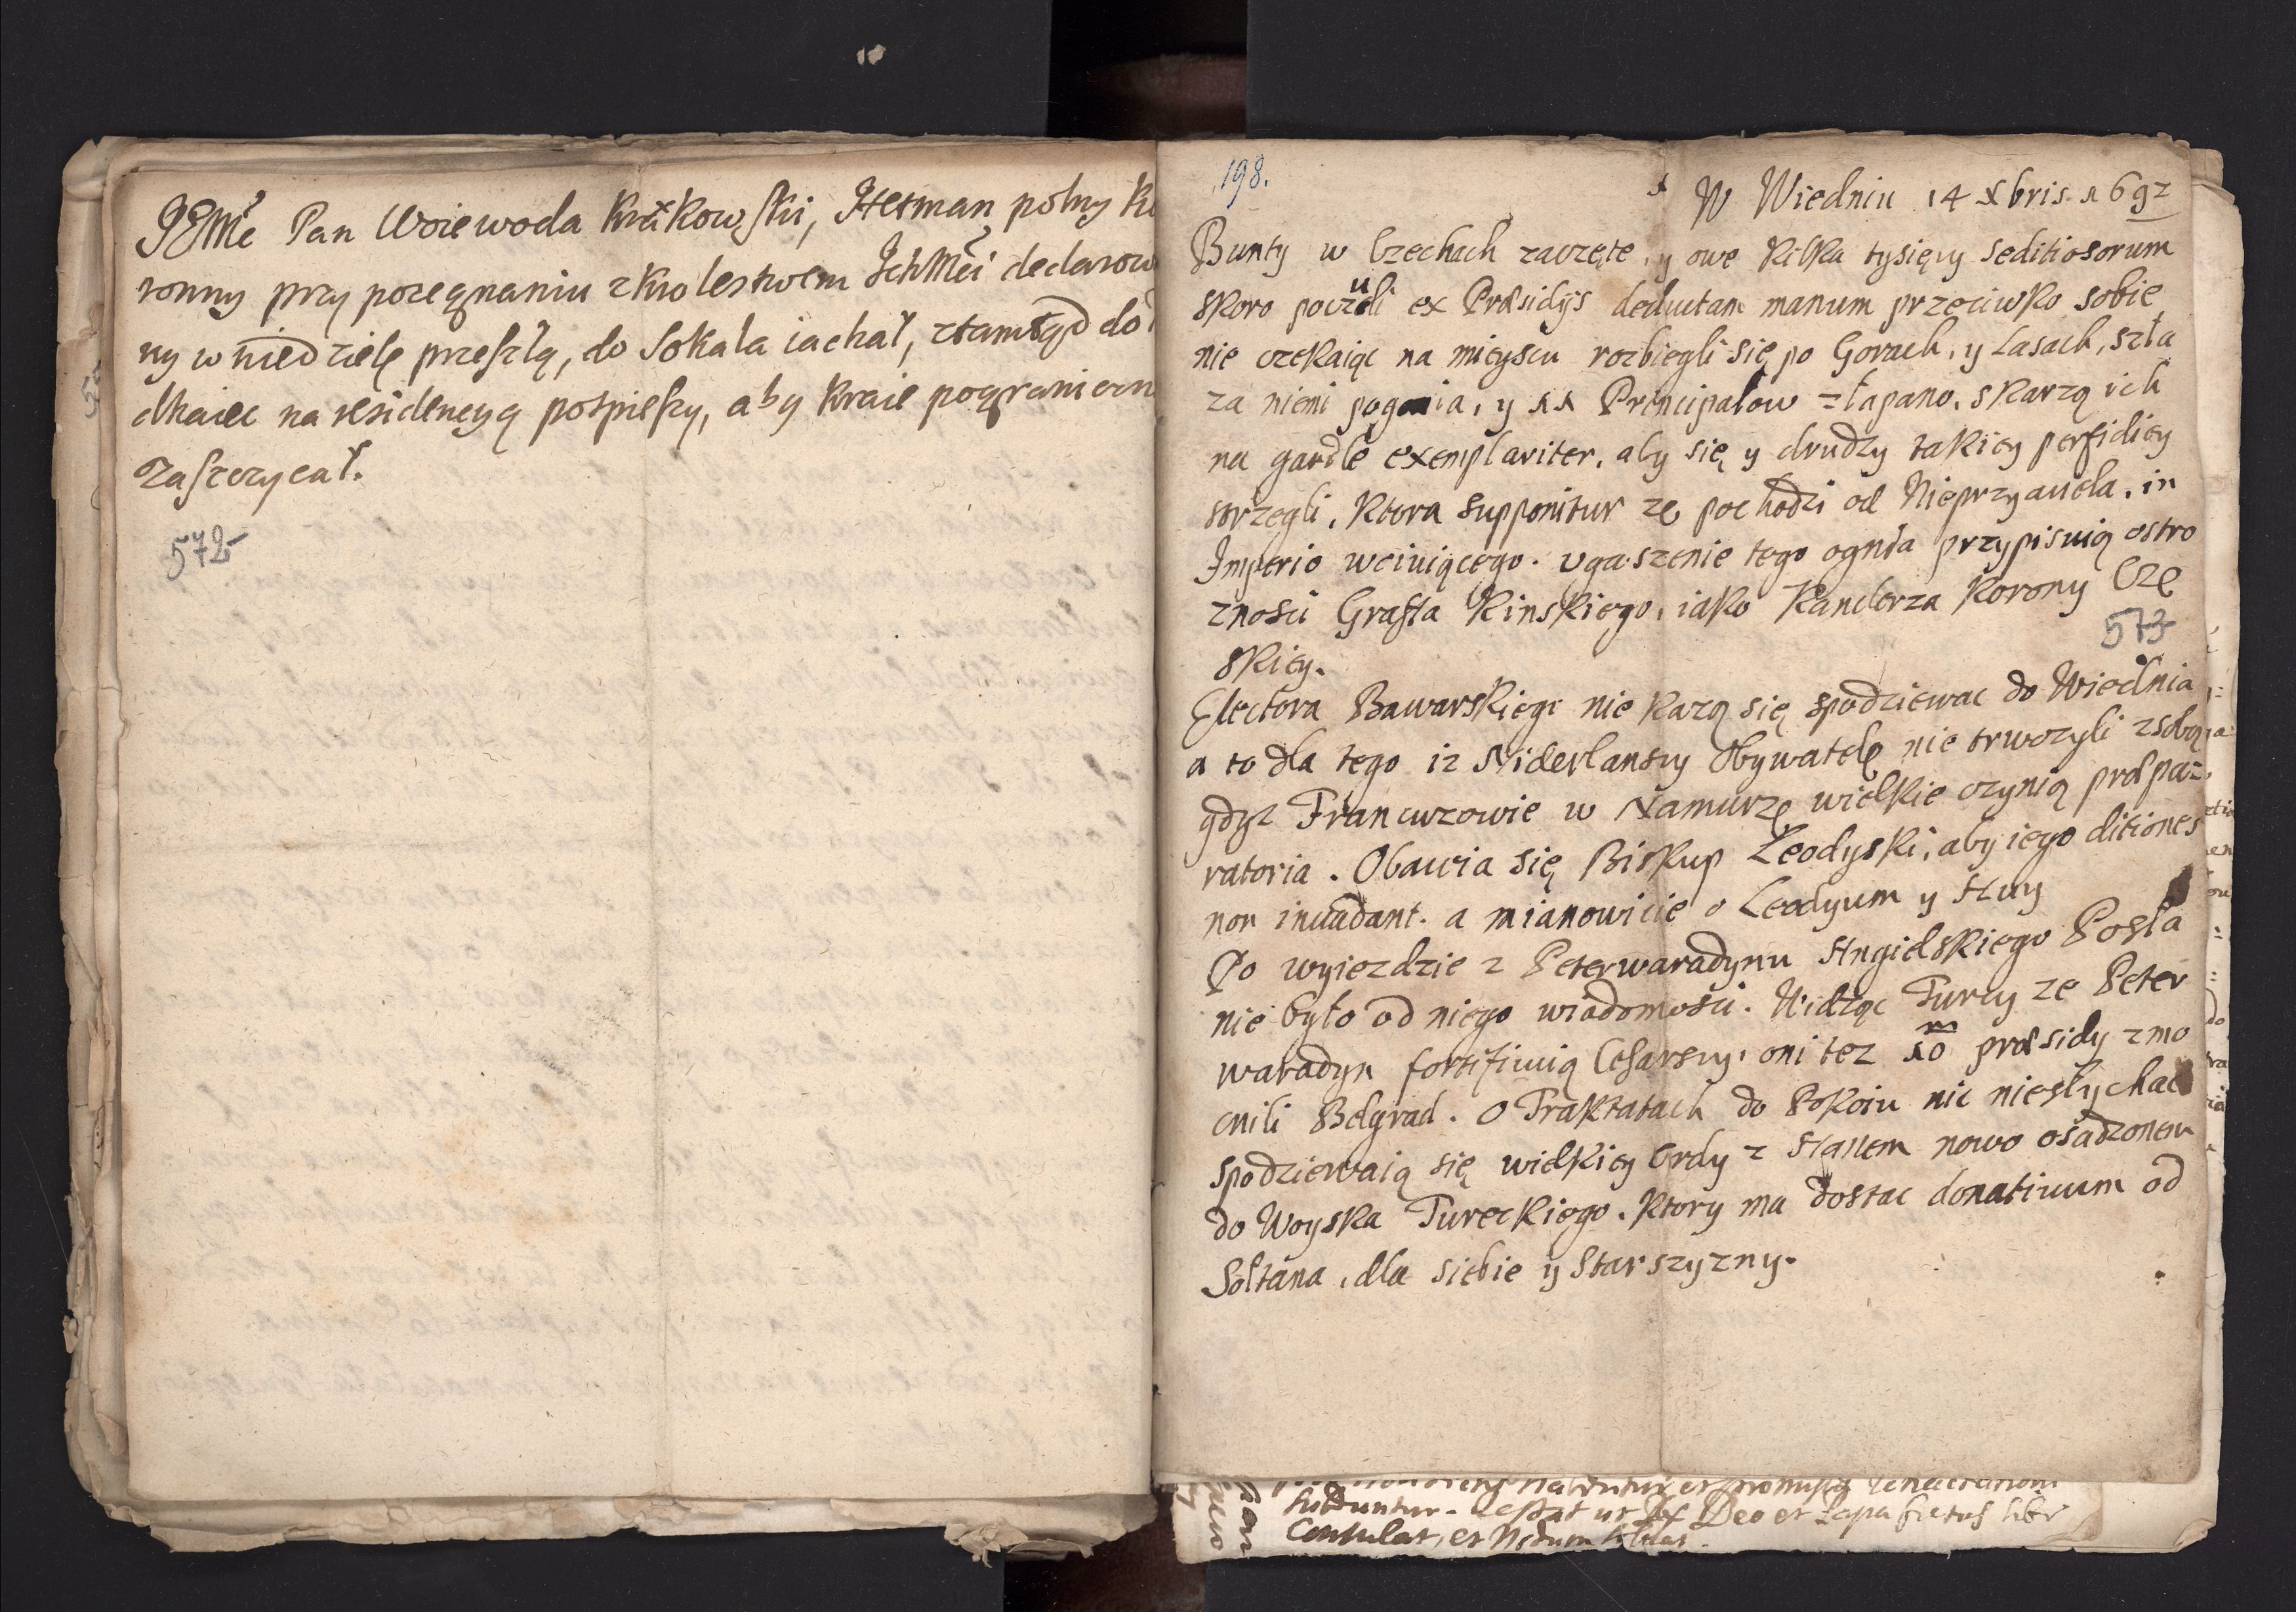 JEMć Pan Woiewoda Krakowski, Hetman polny
ronny przy pozegnaniu z krolestwem IchMći
ny w niedzielę przeszłą, do Sokala iachał, ztamtąd do
dhaiec na residencyą pospieszy, aby kraie
zaszczycał.
572
198.
W Wiedniu 14 Xbris 1692
Bunty w Czechach zaczęte, y owe kilka tysięcy Seditiosorum
skoro poczuli ex Præsidijs deductam manum przeciwko sobie
nie czekaiąc na mieyscu rozbiegli się po Gorach, y Lasach, szła
za niemi pogonia, y 11 Principałow złapano, skarzą ich
na gardle exemplariter, aby się y drudzy takiey perfidiey
strzegli, ktora supponitur ze pochodzi od Nieprzyaciela, in
Imperio wciniącego. Ugaszenie tego ognia przypisuią ostro
znosci Graffa Kinskiego, iako Kanclerza Korony Cze
573
skiey.
Electora Bawarskiego nie kazą się spodziewac do Wiednia
a to dla tego iz Niderlanscy Obywatele nie trwozyli z sobą,
gdyz Francuzowie w Namurze wielkie czynią præpa=
ratoria. Obawia się Biskup Leodyski, aby iego ditiones
non invadant. a mianowicie o Leodyum y Huy
Po wyiezdzie z Peterwaradynu Angielskiego Posła
nie było od niego wiadomosci. Widząc Turcy ze Peter
waradyn fortifiuią Cesarscy, oni tez 10 m præsidy zmo
cnili Belgrad. O Traktatach do Pokoiu nic niesłychac
spodziewaią się wielkiey Ordy z Hanem nowo osadzonem
do Woyska Tureckiego. Ktory ma dostac donativum od
Sołtana, dla siebie y Starszyzny.
Deo et Papa